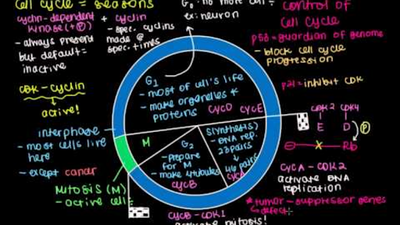 cell cycle = seasons
cyclin-dependent + cyclin
kinase (+P)
- always present
but default-
inactive
- spec. cyclins
made @
spec. times
CDK-cyclin
active!
interphase
- most cells live
here
- except cancer
Mitosis (M)
- active cell
G₀: no more cell
ex: neuron
G₁
- most of cell's life
- make organelles +
proteins
CYCD CYCE
M
G₂
- prepare
for M
- make
CYCB
S(synthesis)
- DNA rep.
23 pairs
46 pairs
CYCA
CYCB-CDK1
activate mitosis!
control of
Cell Cycle
p53 = guardian of genome
- block cell cycle
progression
p21 = inhibit CDK
CDK2 CDK4
E D P
E X Rb
CYCA - CDK2
activate DNA
replication
*tumor-suppressor genes
defect